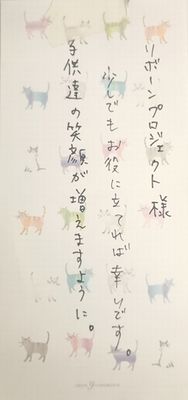 リボーンプロジェクト 様
少しでもお役に立てれば幸いです。
子供達の笑顔が増えますように。